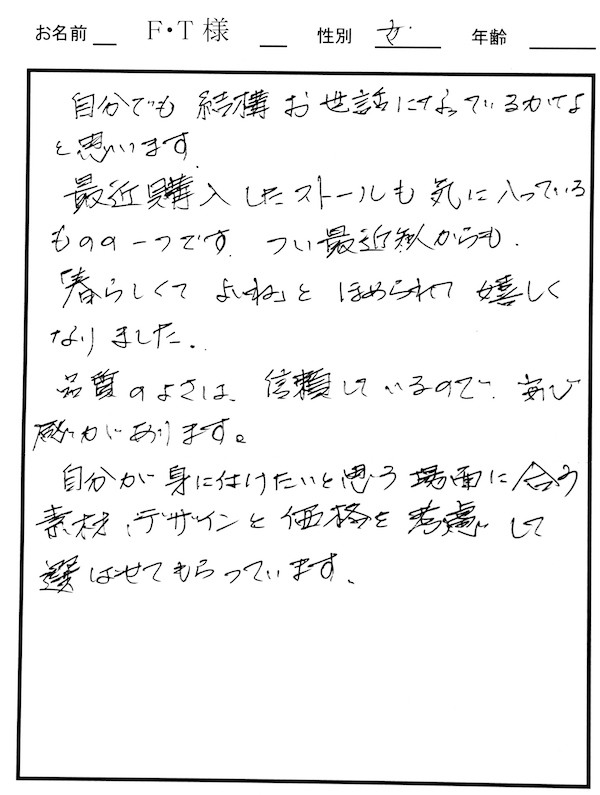 お名前 F・T 様 性別 女 年齢
自分でも 結構 お世話になっているかなよ
と思います。
最近購入したストールも 気に入っている
ものの一つです。つい最近知人からも、
「春らしくて よいね」と ほめられて 嬉しく
なりました。
品質のよさは、信頼しているので、安心
感があります。
自分が身に付けたいと思う場面に合う
素材、デザインと価格を考慮して
選ばせてもらっています。